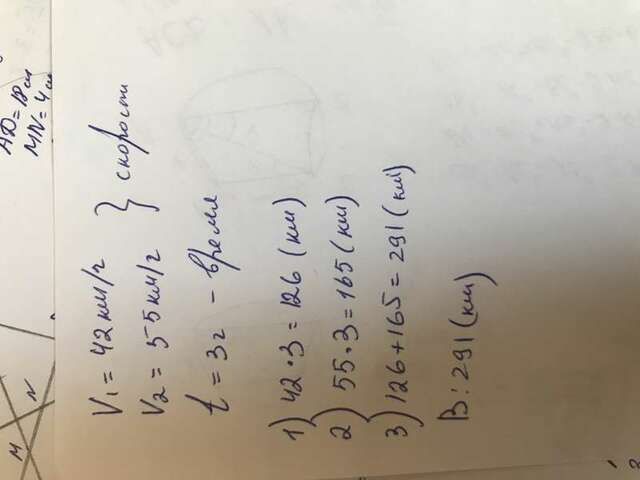 M
N
AD=18см
MN=4см
V1 = 42км/г
V2 = 55км/г } скорости
t = 3г - время
1) 42·3=126 (км)
2) 55·3=165(км)
3) 126+165=291(км)
В: 291(км)